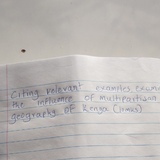 Citing relevant examples examine
the influence of multipartism
geography of Kenya (